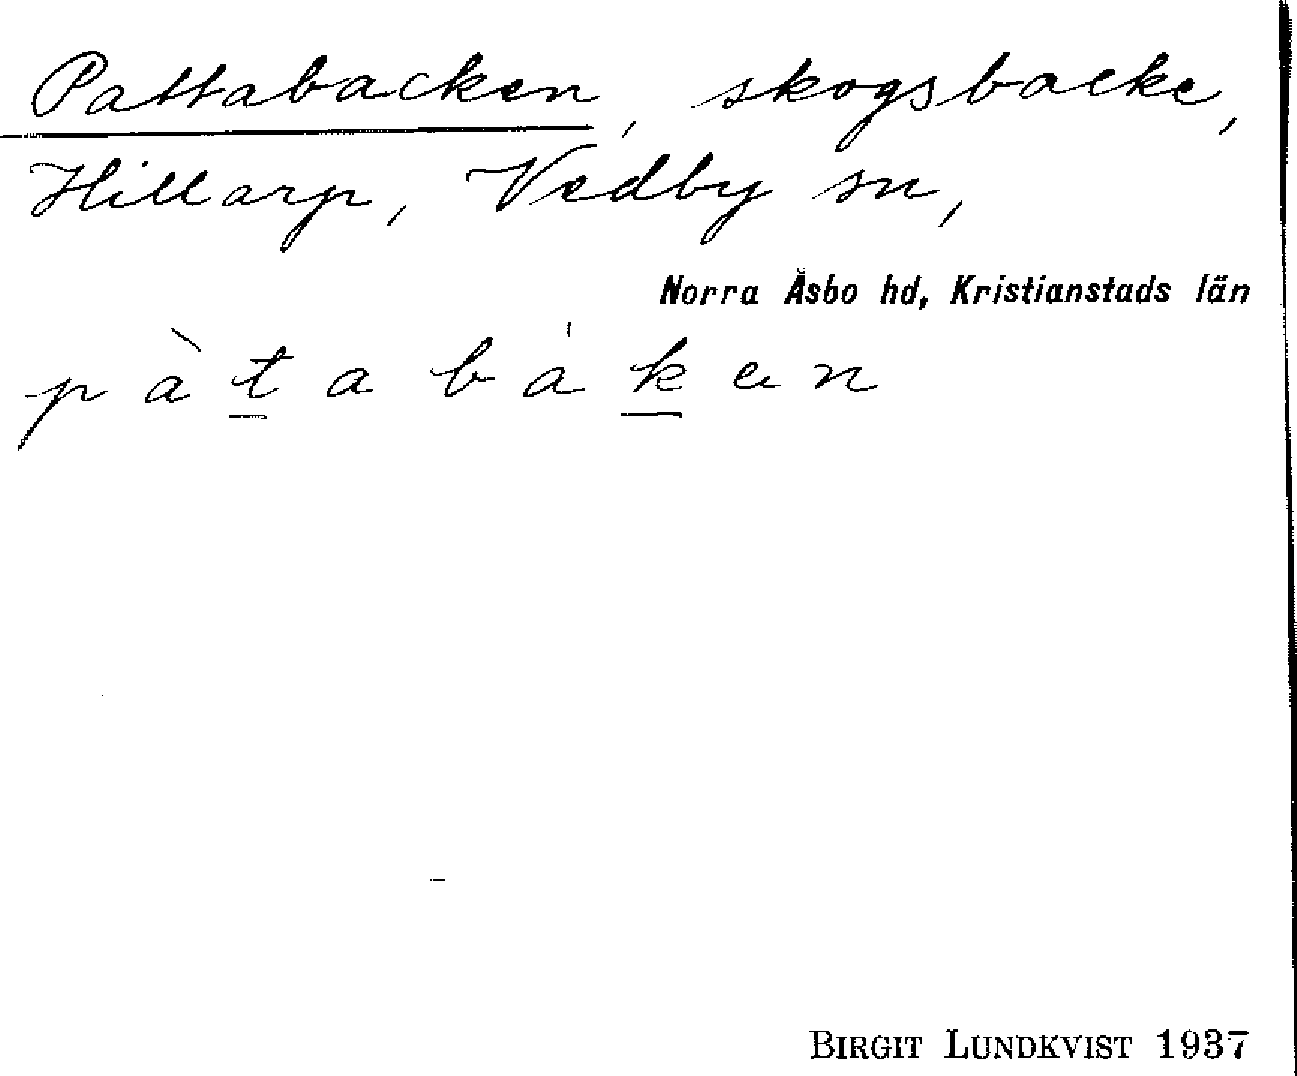 Pattabacken, skogsbacke,
Hillarp, Vedby sn,
Norra Åsbo hd, Kristianstads län
pàtabáken
BIRGIT LUNDKVIST 1937